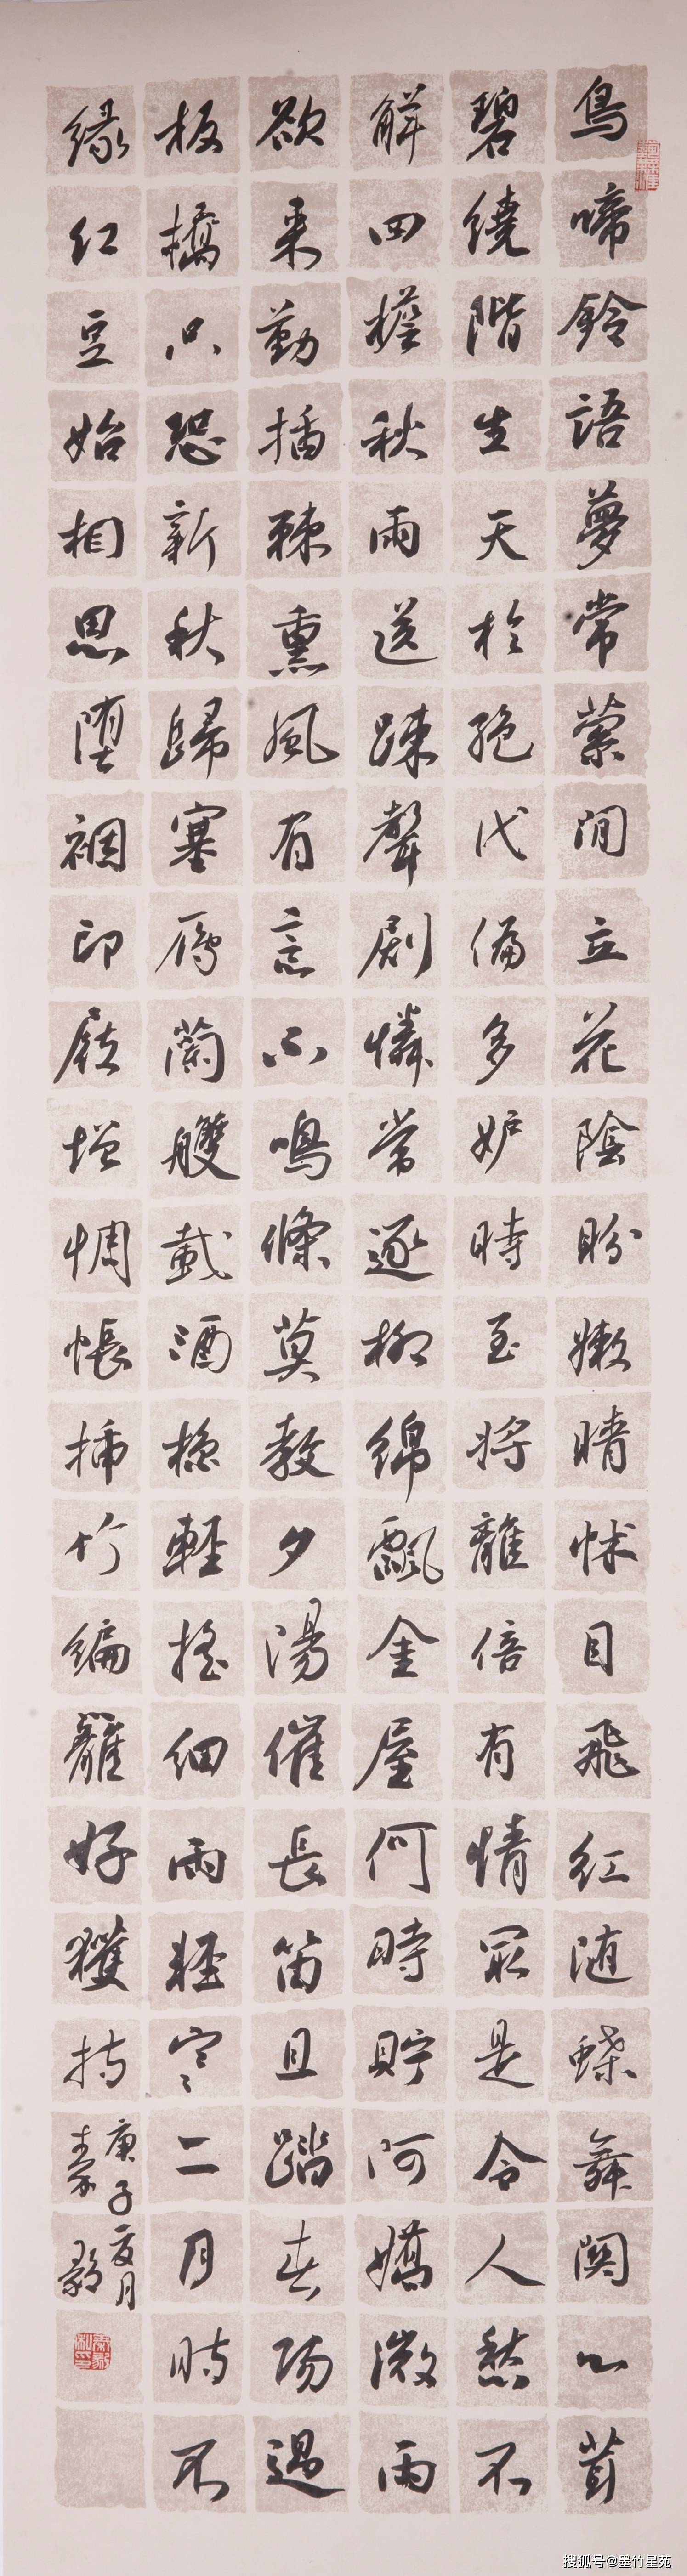 鳥啼鈴語夢常縈閒立花陰盼嫩晴怵目飛紅随蝶舞関心茸
碧繞階生天於絶代偏多妒時至將離倍有情最是令人愁不
解四檐秋雨送疎聲劇憐常逐柳綿飄金屋何時貯阿嬌微雨
欲來勤插棘熏風有意不鳴條莫教夕湯催長笛且踏春陽過
板橋只恐新秋歸塞雁蘭艭載酒櫓輕搖細雨輕寒二月時不
緣紅豆始相思堕裀印屐增惆悵插竹編籬好獲持
庚子夏月
搜狐号@墨竹星苑